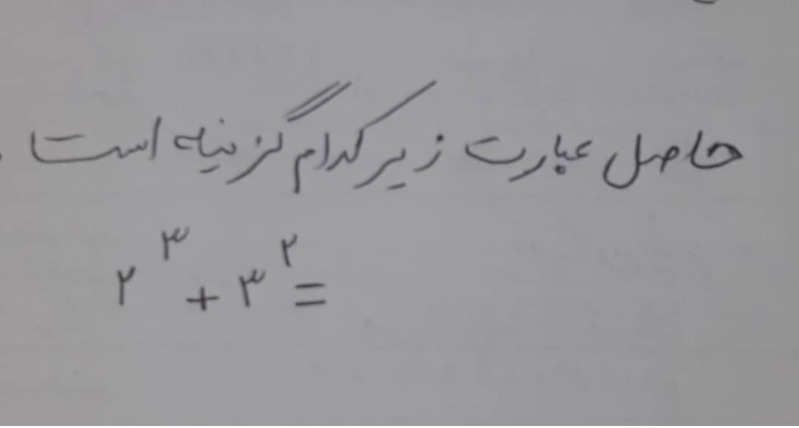 حاصل عبارت زیر کدام گزینه است.
۲^۳ + ۳^۲ =